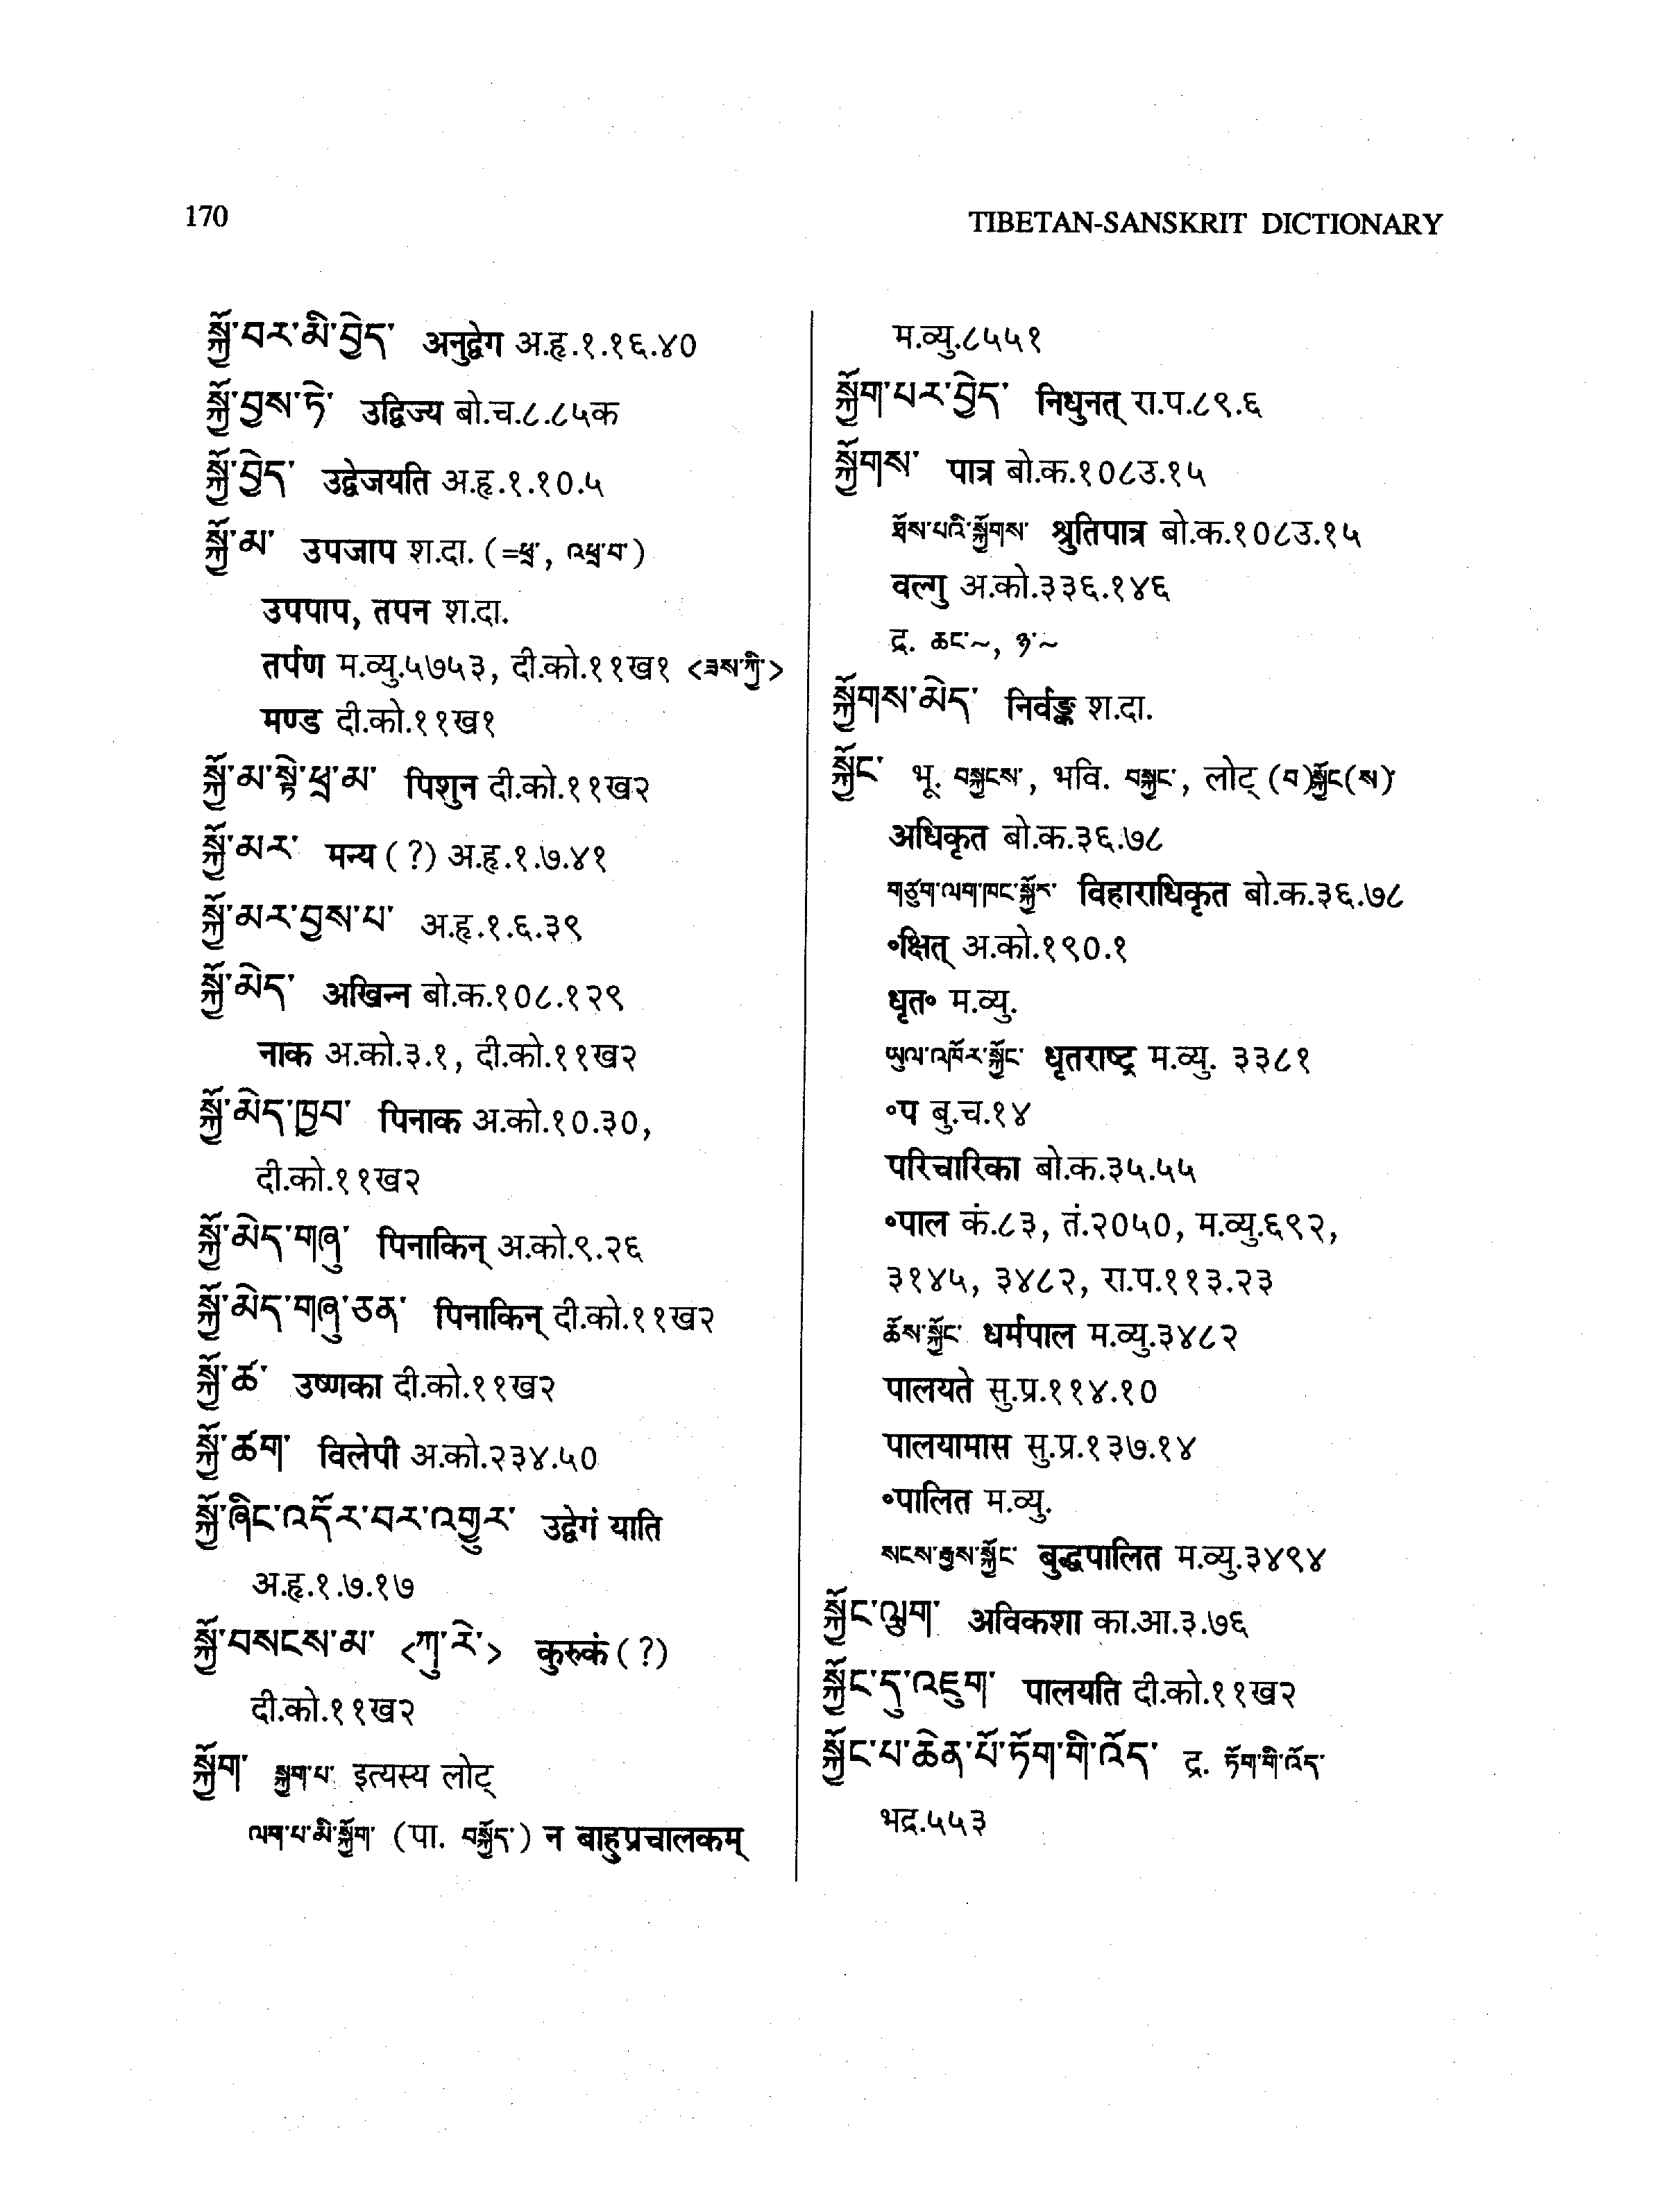 170
TIBETAN-SANSKRIT DICTIONARY
སྐྱོ་བར་མི་བྱེད་ अनुद्वेग अ.हृ.१.१६.४०
སྐྱོ་བྱས་ཏེ་ उद्विज्य बो.च.८.८५क
སྐྱོ་བྱེད་ उद्वेजयति अ.हृ.१.१०.५
སྐྱོ་མ་ उपजाप श.दा. (=ཕྲ་, འཕྲ་བ་)
उपपाप, तपन श.दा.
तर्पण म.व्यु.५७५३, दी.को.११ख१ <ཟས་ཀྱི་>
मण्ड दी.को.११ख१
སྐྱོ་མ་སྟེ་ཕྲ་མ་ पिशुन दी.को.११ख२
སྐྱོ་མར་ मन्य (?) अ.हृ.१.७.४१
སྐྱོ་མར་བྱས་པ་ अ.हृ.१.६.३९
སྐྱོ་མེད་ अखिन्न बो.क.१०८.१२९
नाक अ.को.३.१, दी.को.११ख२
སྐྱོ་མེད་ཁྱབ་ पिनाक अ.को.१०.३०,
दी.को.११ख२
སྐྱོ་མེད་གཞུ་ पिनाकिन् अ.को.९.२६
སྐྱོ་མེད་གཞུ་ཅན་ पिनाकिन् दी.को.११ख२
སྐྱོ་ཚ་ उष्णका दी.को.११ख२
སྐྱོ་ཚག་ विलेपी अ.को.२३४.५०
སྐྱོ་ཞིང་འདོར་བར་འགྱུར་ उद्वेगं याति
अ.हृ.१.७.१७
སྐྱོ་བསངས་མ་ <ཀུ་རེ་> कुरुकं (?)
दी.को.११ख२
སྐྱོག་ སྐྱག་པ་ इत्यस्य लोट्
ལག་པ་མི་སྐྱོག་ (पा. བསྐྱོད་) न बाहुप्रचालकम्
म.व्यु.८५५१
སྐྱོག་པར་བྱེད་ निधुनत् रा.प.८९.६
སྐྱོགས་ पात्र बो.क.१०८उ.१५
ཐོས་པའི་སྐྱོགས་ श्रुतिपात्र बो.क.१०८उ.१५
वल्गु अ.को.३३६.१४६
द्र. ཆང་~, ཉ་~
སྐྱོགས་མེད་ निर्वङ्क श.दा.
སྐྱོང་ भू. བསྐྱངས་, भवि. བསྐྱང་, लोट् (བ)སྐྱོང(ས)་
अधिकृत बो.क.३६.७८
གཙུག་ལག་ཁང་སྐྱོར་ विहाराधिकृत बो.क.३६.७८
॰क्षित् अ.को.१९०.१
धृत॰ म.व्यु.
ཡུལ་འཁོར་སྐྱོང་ धृतराष्ट्र म.व्यु. ३३८१
॰प बु.च.१४
परिचारिका बो.क.३५.५५
॰पाल कं.८३, तं.२०५०, म.व्यु.६९२,
३१४५, ३४८२, रा.प.११३.२३
ཆོས་སྐྱོང་ धर्मपाल म.व्यु.३४८२
पालयते सु.प्र.११४.१०
पालयामास सु.प्र.१३७.१४
॰पालित म.व्यु.
སངས་རྒྱས་སྐྱོང་ बुद्धपालित म.व्यु.३४९४
སྐྱོང་ལུག་ अविकशा का.आ.३.७६
སྐྱོང་དུ་འཇུག་ पालयति दी.को.११ख२
སྐྱོང་པ་ཆེན་པོ་ཏོག་གི་འོད་ द्र. ཏོག་གི་འོད་
भद्र.५५३